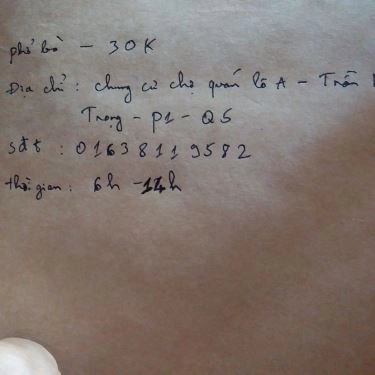 phở bò - 30K
Địa chỉ : chung cư chợ quán lô A - Trần
Trọng - P1 - Q5
sđt : 01638119582
thời gian : 6h - 14h